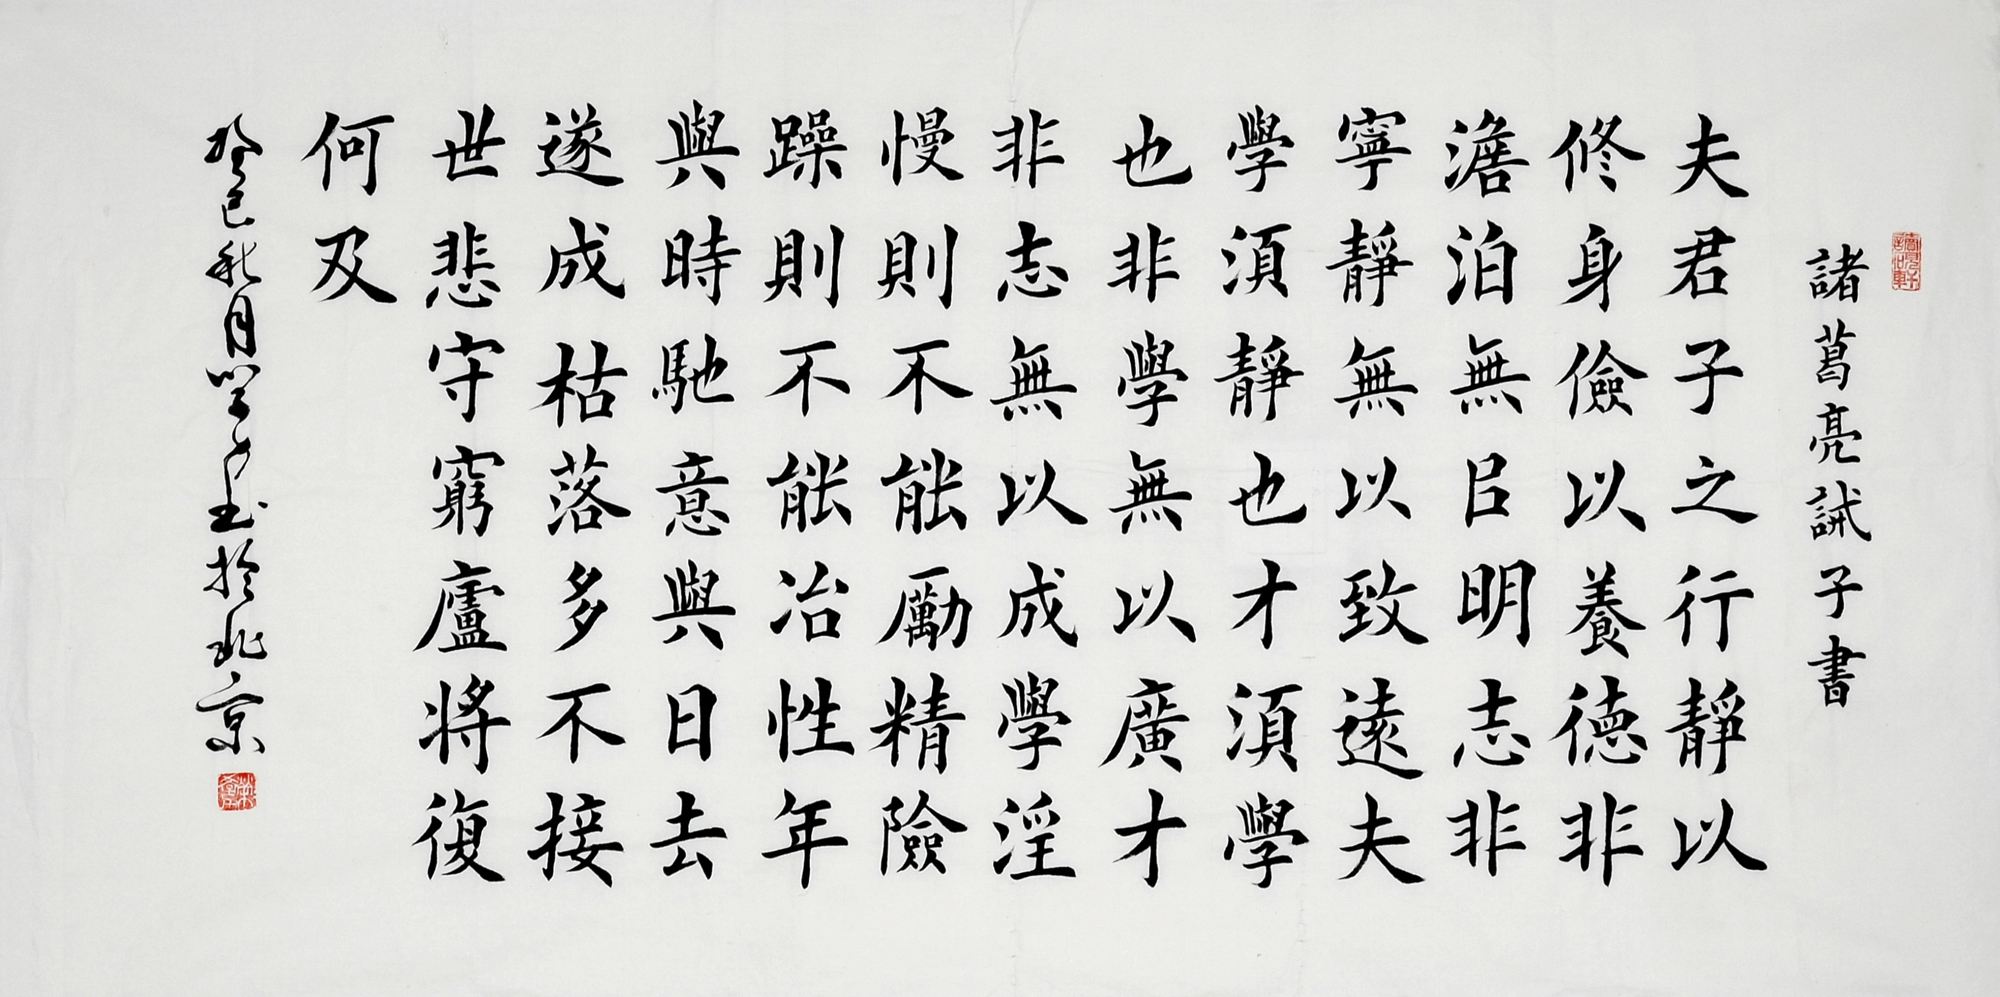 諸葛亮誡子書
夫君子之行靜以
修身儉以養德非
澹泊無㠯明志非
寧靜無以致遠夫
學須靜也才須學
也非學無以廣才
非志無以成學淫
慢則不能勵精險
躁則不能冶性年
與時馳意與日去
遂成枯落多不接
世悲守窮廬將復
何及
癸巳秋月學書於北京